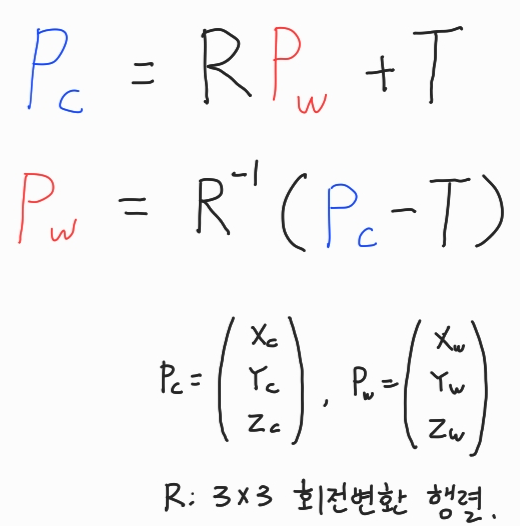 Pc = R Pw + T
Pw = R⁻¹ (Pc - T)
Pc = (Xc Yc Zc), Pw = (Xw Yw Zw)
R: 3×3 회전변환 행렬.